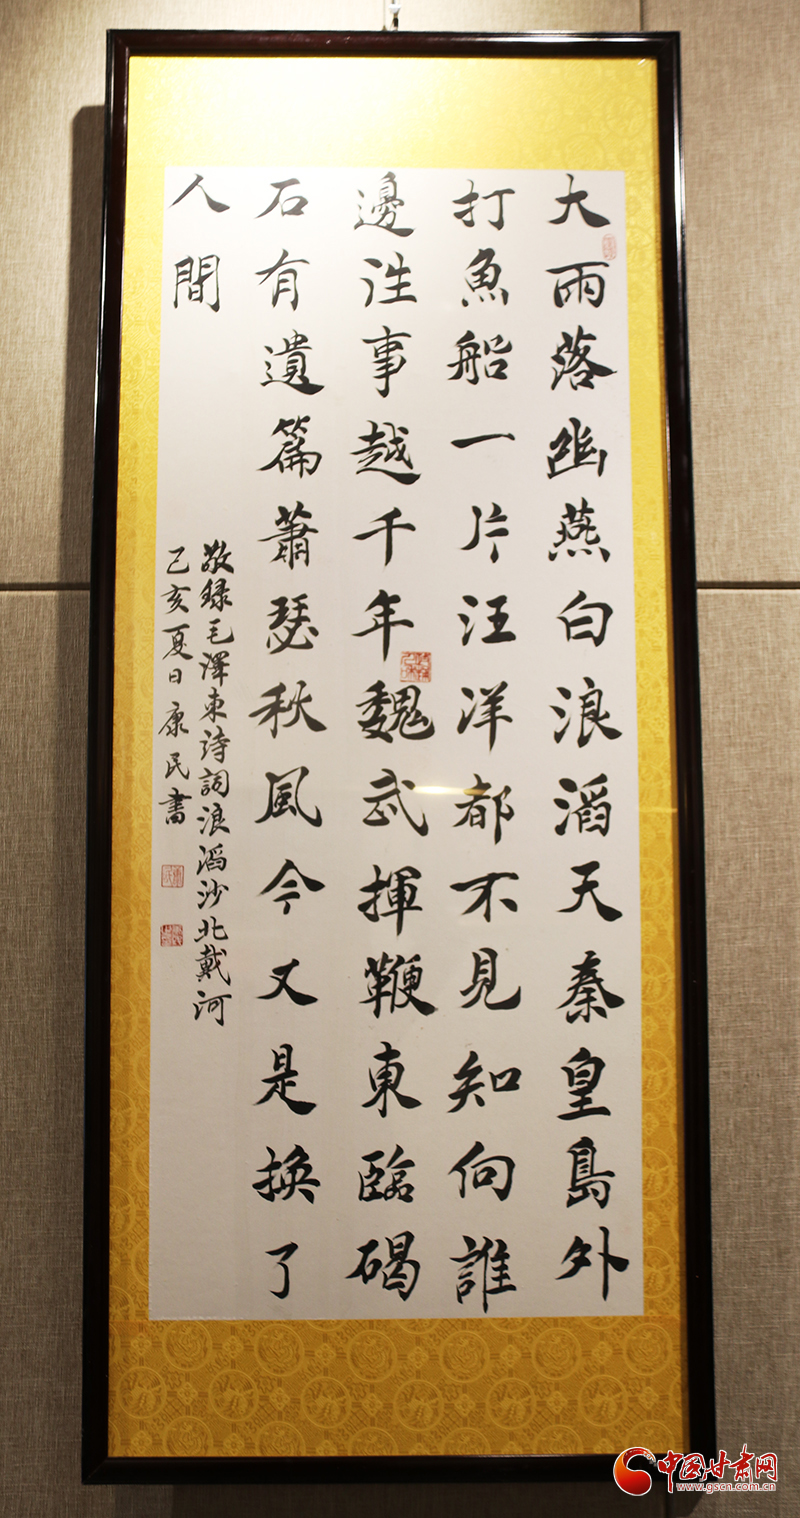 大雨落幽燕白浪滔天秦皇島外
打魚船一片汪洋都不見知向誰
邊往事越千年魏武揮鞭東臨碣
石有遺篇蕭瑟秋風今又是換了
人間
敬録毛澤東詩詞浪滔沙北戴河
己亥夏日康民書
中国甘肃网
www.gscn.com.cn